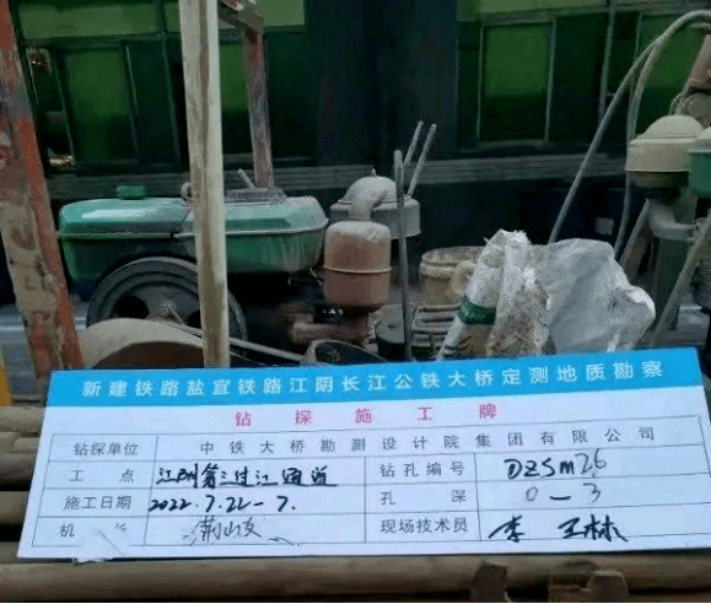 新建铁路盐宜铁路江阴长江公铁大桥定测地质勘察
钻探施工牌
钻探单位 中铁大桥勘测设计院集团有限公司
工点 江阴第三过江通道 钻孔编号 DZSM26
施工日期 2022.7.22-7. 孔深 0-3
机 现场技术员 李 林